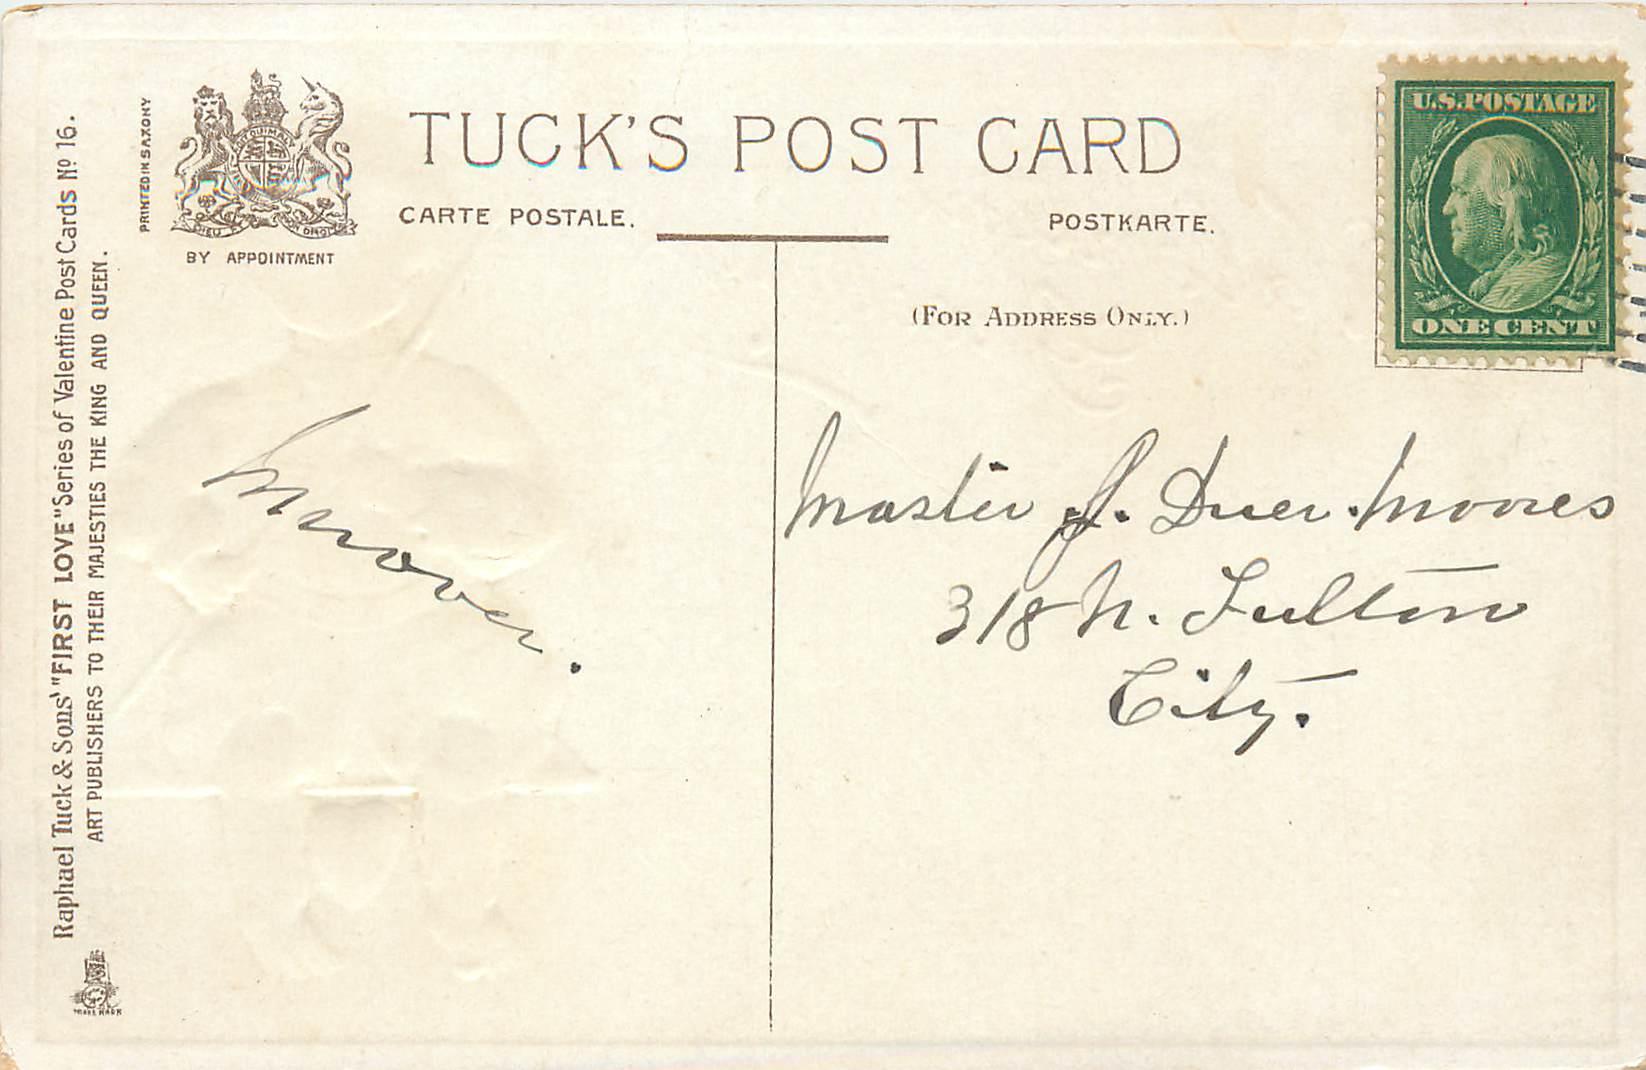 Raphael Tuck & Sons' "FIRST LOVE" Series of Valentine Post Cards Nº 16.
ART PUBLISHERS TO THEIR MAJESTIES THE KING AND QUEEN.
PRINTED IN SAXONY
DIEU ET MON DROIT
BY APPOINTMENT
TRADE MARK
TUCK'S POST CARD
CARTE POSTALE.
POSTKARTE.
(FOR ADDRESS ONLY.)
U.S. POSTAGE
ONE CENT
Master J. Duer Moores
318 N. Fulton
City.